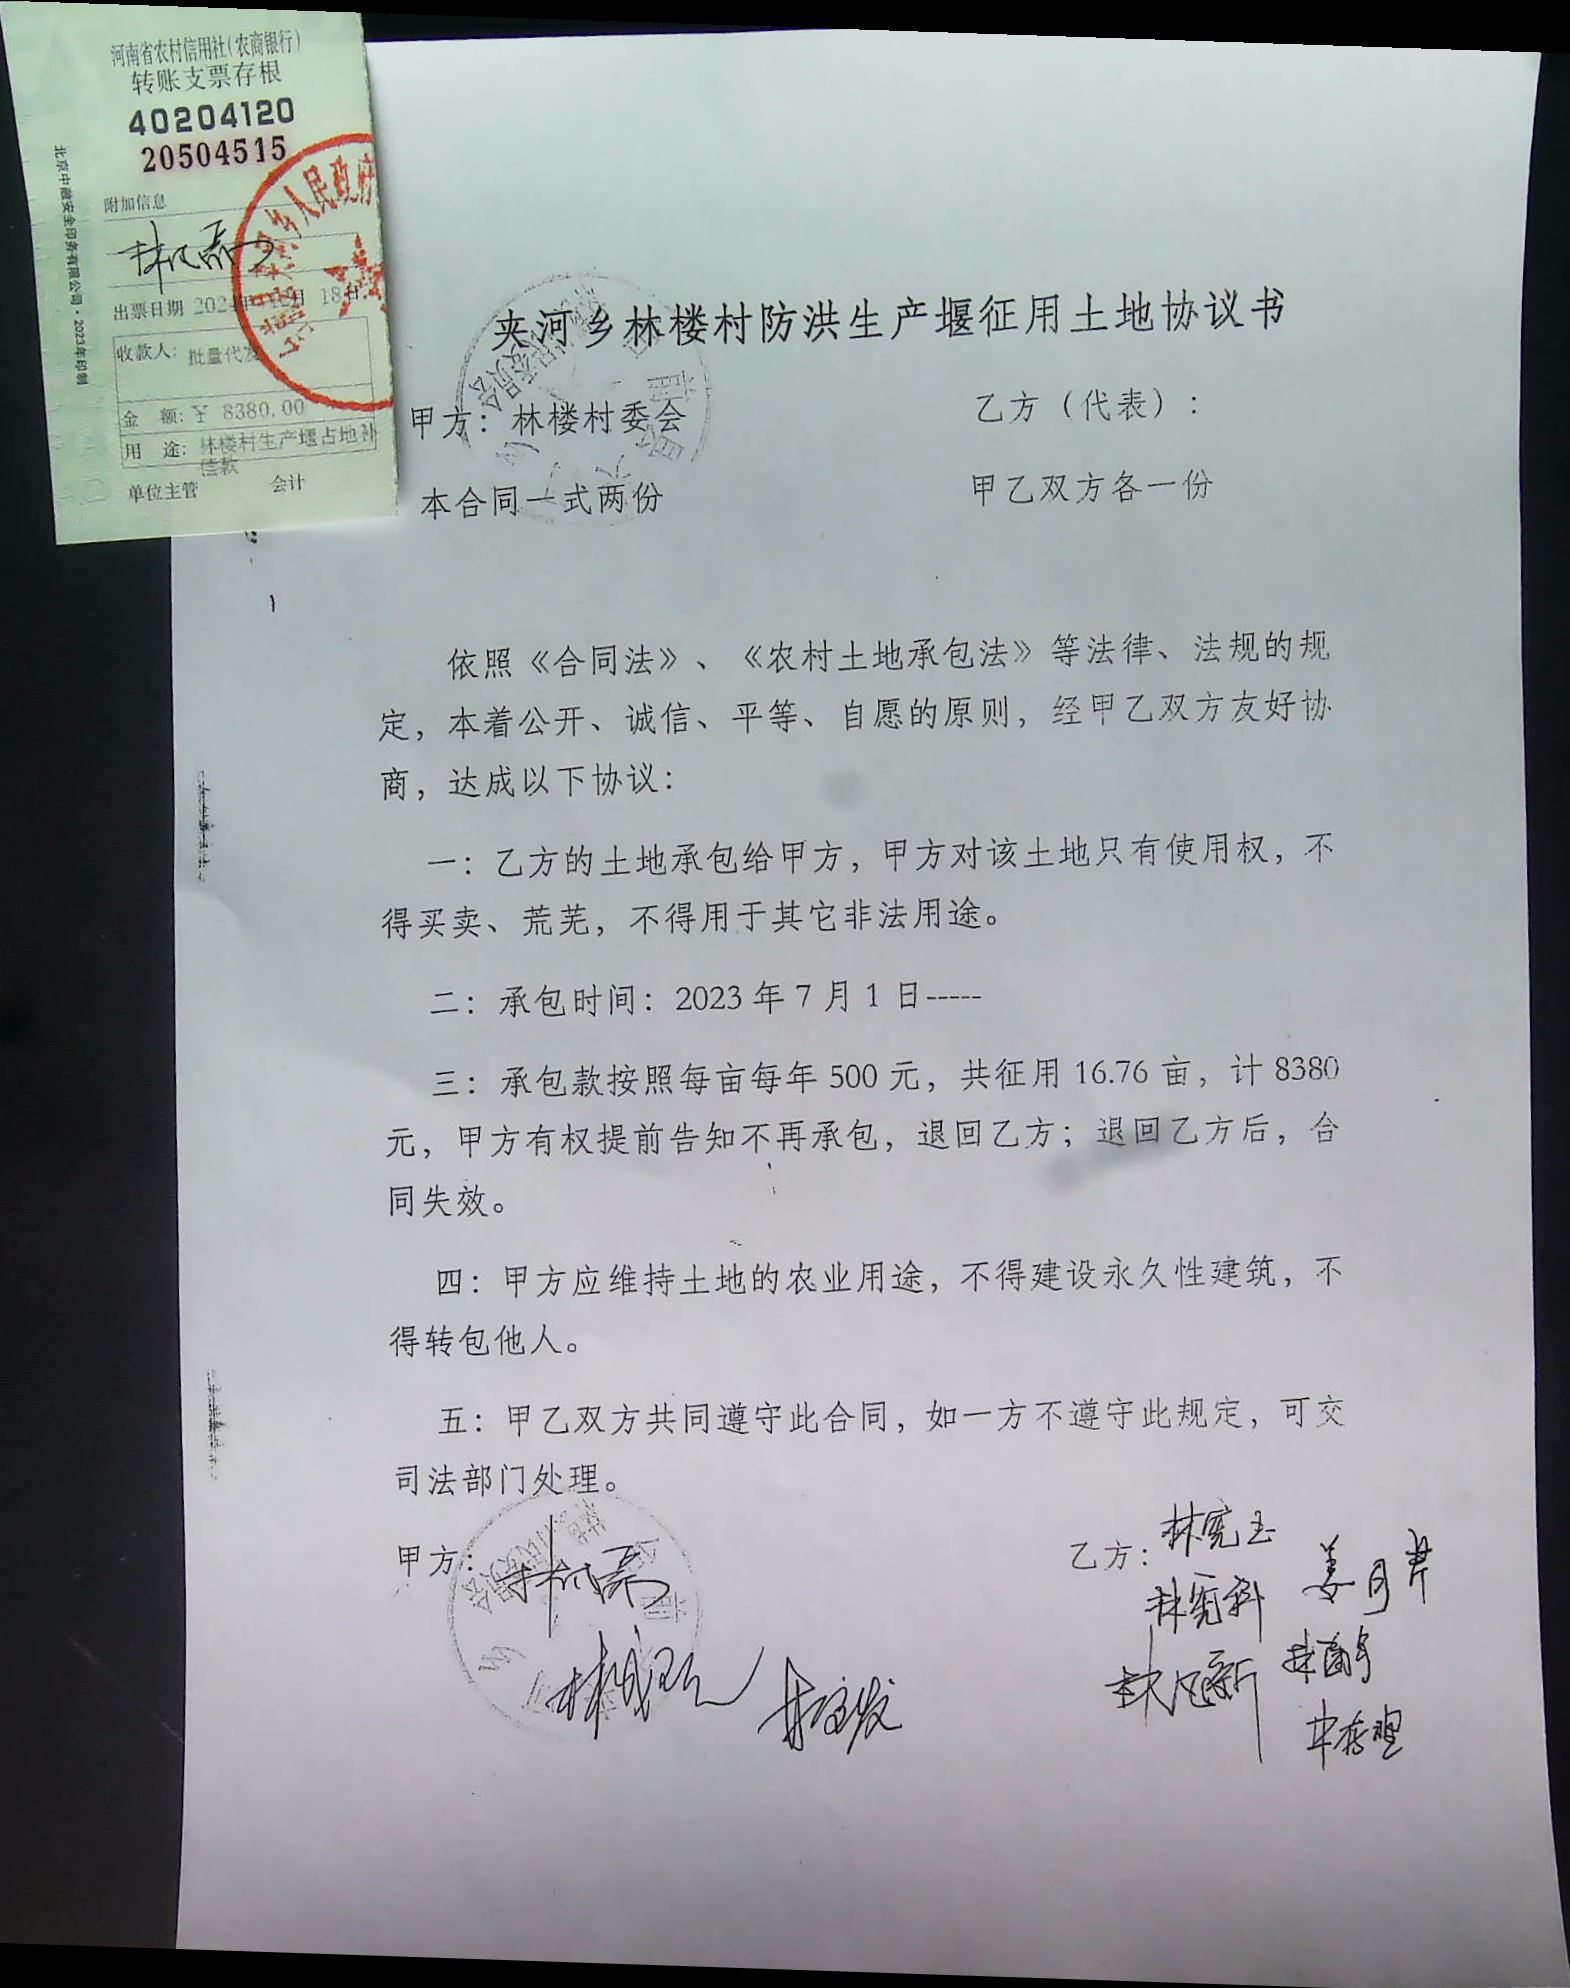 河南省农村信用社(农商银行)
转账支票存根
40204120
20504515
附加信息
出票日期 2024年 18日
收款人: 批量代发
金 额: ¥ 8380.00
用 途: 林楼村生产堰占地补
偿款
单位主管 会计
北京中融安全印务有限公司·2023年印制
乡人民政府
夹河乡林楼村防洪生产堰征用土地协议书
甲方: 林楼村委会 乙方（代表）:
本合同一式两份 甲乙双方各一份
依照《合同法》、《农村土地承包法》等法律、法规的规
定，本着公开、诚信、平等、自愿的原则，经甲乙双方友好协
商，达成以下协议：
一：乙方的土地承包给甲方，甲方对该土地只有使用权，不
得买卖、荒芜，不得用于其它非法用途。
二：承包时间：2023 年 7 月 1 日-----
三：承包款按照每亩每年 500 元，共征用 16.76 亩，计 8380
元，甲方有权提前告知不再承包，退回乙方；退回乙方后，合
同失效。
四：甲方应维持土地的农业用途，不得建设永久性建筑，不
得转包他人。
五：甲乙双方共同遵守此合同，如一方不遵守此规定，可交
司法部门处理。
甲方： 乙方： 林宪玉
林宪科 姜月芹